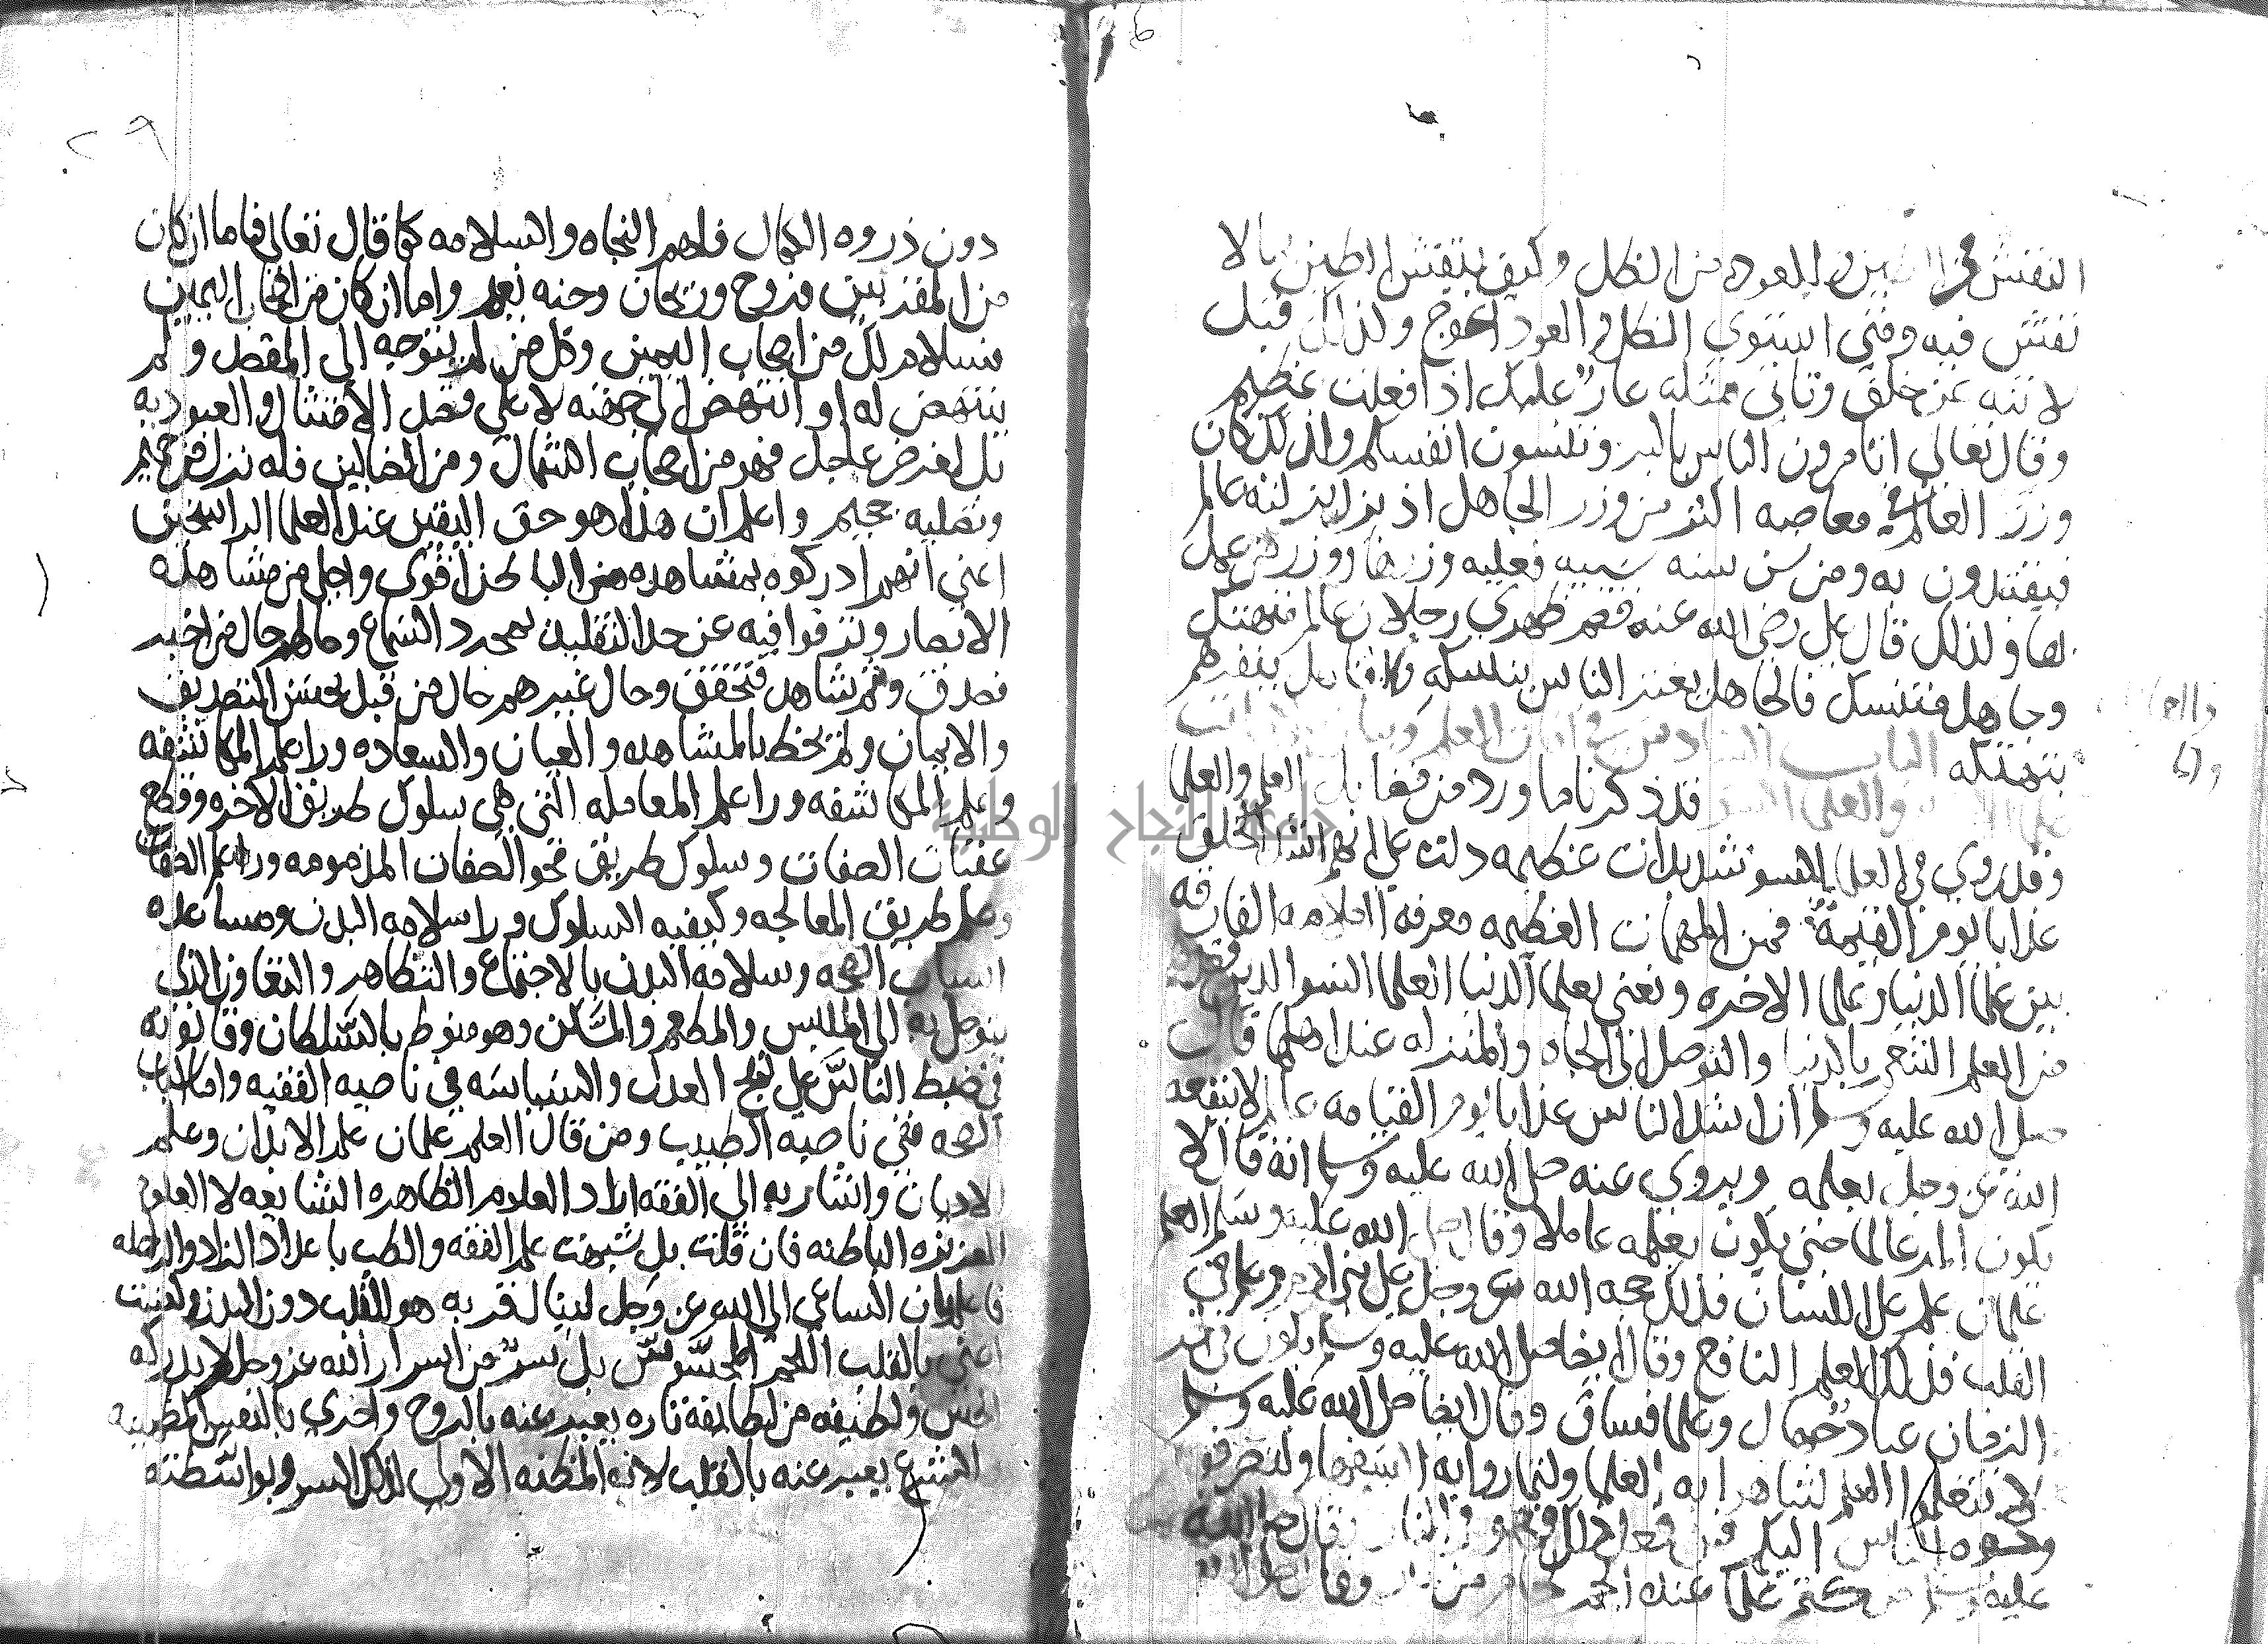 النقش من الطين والعود من الظل وكيف ينتقش الطين بما لا
نقش فيه ومتى استوى الظل والعود اعوج ولذلك قيل
لا تنه عن خلق وتاتي مثله عار عليك اذا فعلت عظيم
وقال تعالى اتامرون الناس بالبر وتنسون انفسكم ولذلك كان
وزر العالم في معاصيه اكثر من وزر الجاهل اذ يزل بزلته عالم
فيقتدون به ومن سن سنه سييه فعليه وزرها ووزر من عمل
بها ولذلك قال علي رضي الله عنه قصم ظهري رجلان عالم متهتك
وجاهل متنسك فالجاهل يغتر الناس بتنسكه والعالم ينفرهم
بتهتكه الباب السادس في افات العلم وبيان علامات
علما الاخره والعلما السو قد ذكرنا ما ورد من فضايل العلم والعلما
وقد روي في العلما السو تشديدات عظيمه دلت على انهم اشد الخلق
عذابا يوم القيمة فمن المهمات العظيمه معرفه العلامه الفارقه
بين علما الدنيا وعلما الاخره ونعني بعلما الدنيا العلما السو الذين قصدهم
من العلم التنعم بالدنيا والتوصل الى الجاه والمنزله عند اهلها قال
صلى الله عليه وسلم ان اشد الناس عذابا يوم القيامه عالم لا ينفعه
الله عز وجل بعلمه ويروي عنه صلى الله عليه وسلم انه قال لا
يكون المرء عالما حتى يكون بعلمه عاملا وقال صلى الله عليه وسلم العلم
علمان علم على اللسان فذلك حجه الله عز وجل على بني ادم وعلم في
القلب فذلك العلم النافع وقال ايضا صلى الله عليه وسلم يكون في اخر
الزمان عباد جهال وعلما فساق وقال ايضا صلى الله عليه وسلم
لا تتعلموا العلم لتباهوا به العلما ولتماروا به السفها ولتصرفوا
وجوه الناس اليكم فمن فعل ذلك فهو في النار وقال صلى الله
عليه وسلم من كتم علما عنده الجم بلجام من نار وقال صلى الله
دون ذروه الكمال فلهم النجاه والسلامه كما قال تعالى فاما ان كان
من المقربين فروح وريحان وجنه نعيم واما ان كان من اصحاب اليمين
فسلام لك من اصحاب اليمين وكل من لم يتوجه الى المقصد ولم
ينتهض له او انتهض الى جهته لا على قصد الامتثال والعبوديه
بل لغرض عاجل فهو من اصحاب الشمال ومن الضالين فله نزل من حميم
وتصليه جحيم واعلم ان هذا هو حق اليقين عند العلما الراسخين
اعني انهم ادركوه بمشاهده من الباطن اقوى واجلى من مشاهده
الابصار وترقوا فيه عن حد التقليد بمجرد السماع وحالهم حال من اخبر
فصدق وثم شاهد فتحقق وحال غيرهم حال من قبل بحسن التصديق
والايمان ولم يحظ بالمشاهده والعيان والسعاده ورا علم المكاشفه
وعلم المكاشفه ورا علم المعامله التي هي سلوك طريق الاخره وقطع
عقبات الصفات وسلوك طريق محو الصفات المذمومه ورا علم الصفات
وعلم طريق المعالجه وكيفيه السلوك ورا سلامه البدن ومساعده
اسباب الصحه وسلامه البدن بالاجتماع والتظاهر والتعاون الذي
يتوصل به الى الملبس والمطعم والمسكن وهو منوط بالسلطان وقانونه
في ضبط الناس على نهج العدل والسياسه في ناصيه الفقيه واما اسباب
الصحه ففي ناصيه الطبيب ومن قال العلم علمان علم الابدان وعلم
الاديان واشار به الى الفقه اراد العلوم الظاهره الشايعه لا العلوم
العزيزه الباطنه فان قلت بل شبهت علم الفقه والطب باعداد الزاد والراحله
فاعلم ان الساعي الى الله عز وجل لينال قربه هو القلب دون البدن ولست
اعني بالقلب اللحم المحسوس بل سر من اسرار الله عز وجل لا يدركه
الحس ولطيفه من لطايفه تاره يعبر عنه بالروح واخرى بالنفس المطمئنه
والشرع يعبر عنه بالقلب لانه المظنه الاولى لذلك السر وبواسطته
جامعة النجاح الوطنية